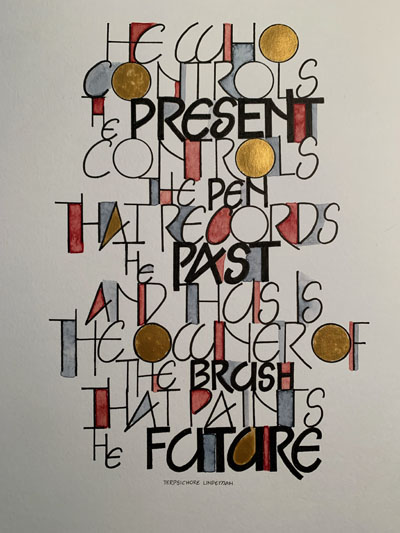 HE WHO
CONTROLS
THE PRESENT
CONTROLS
THE PEN
THAT RECORDS
THE PAST
AND THUS IS
THE OWNER OF
THE BRUSH
THAT PAINTS
THE FUTURE
TERPSICHORE LINDEMAN